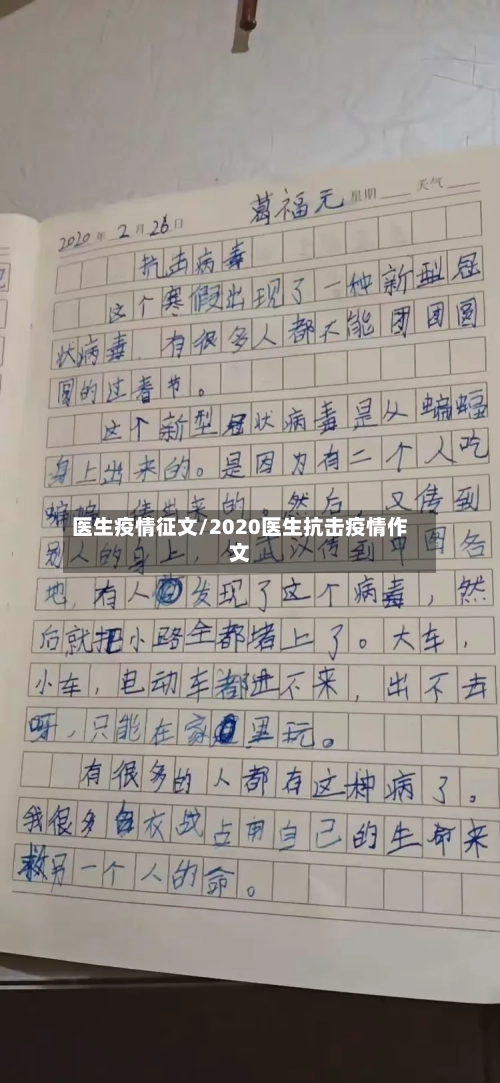 葛福元 星期 天气
2020年 2月26日
抗击病毒
这个寒假出现了一种新型冠
状病毒．有很多人都不能团团圆
圆的过春节。
这个新型冠状病毒是从蝙蝠
身上出来的。是因为有二个人吃
传出来的。然后，又传到
医生疫情征文/2020医生抗击疫情作
文
别人的身上，从武汉传到中国各
地，有人发现了这个病毒，然
后就把小路全都堵上了。大车，
小车，电动车都进不来，出不去
呀，只能在家里玩。
有很多的人都有这种病了。
我很多白衣战占用自己的生命来
救另一个人的命。